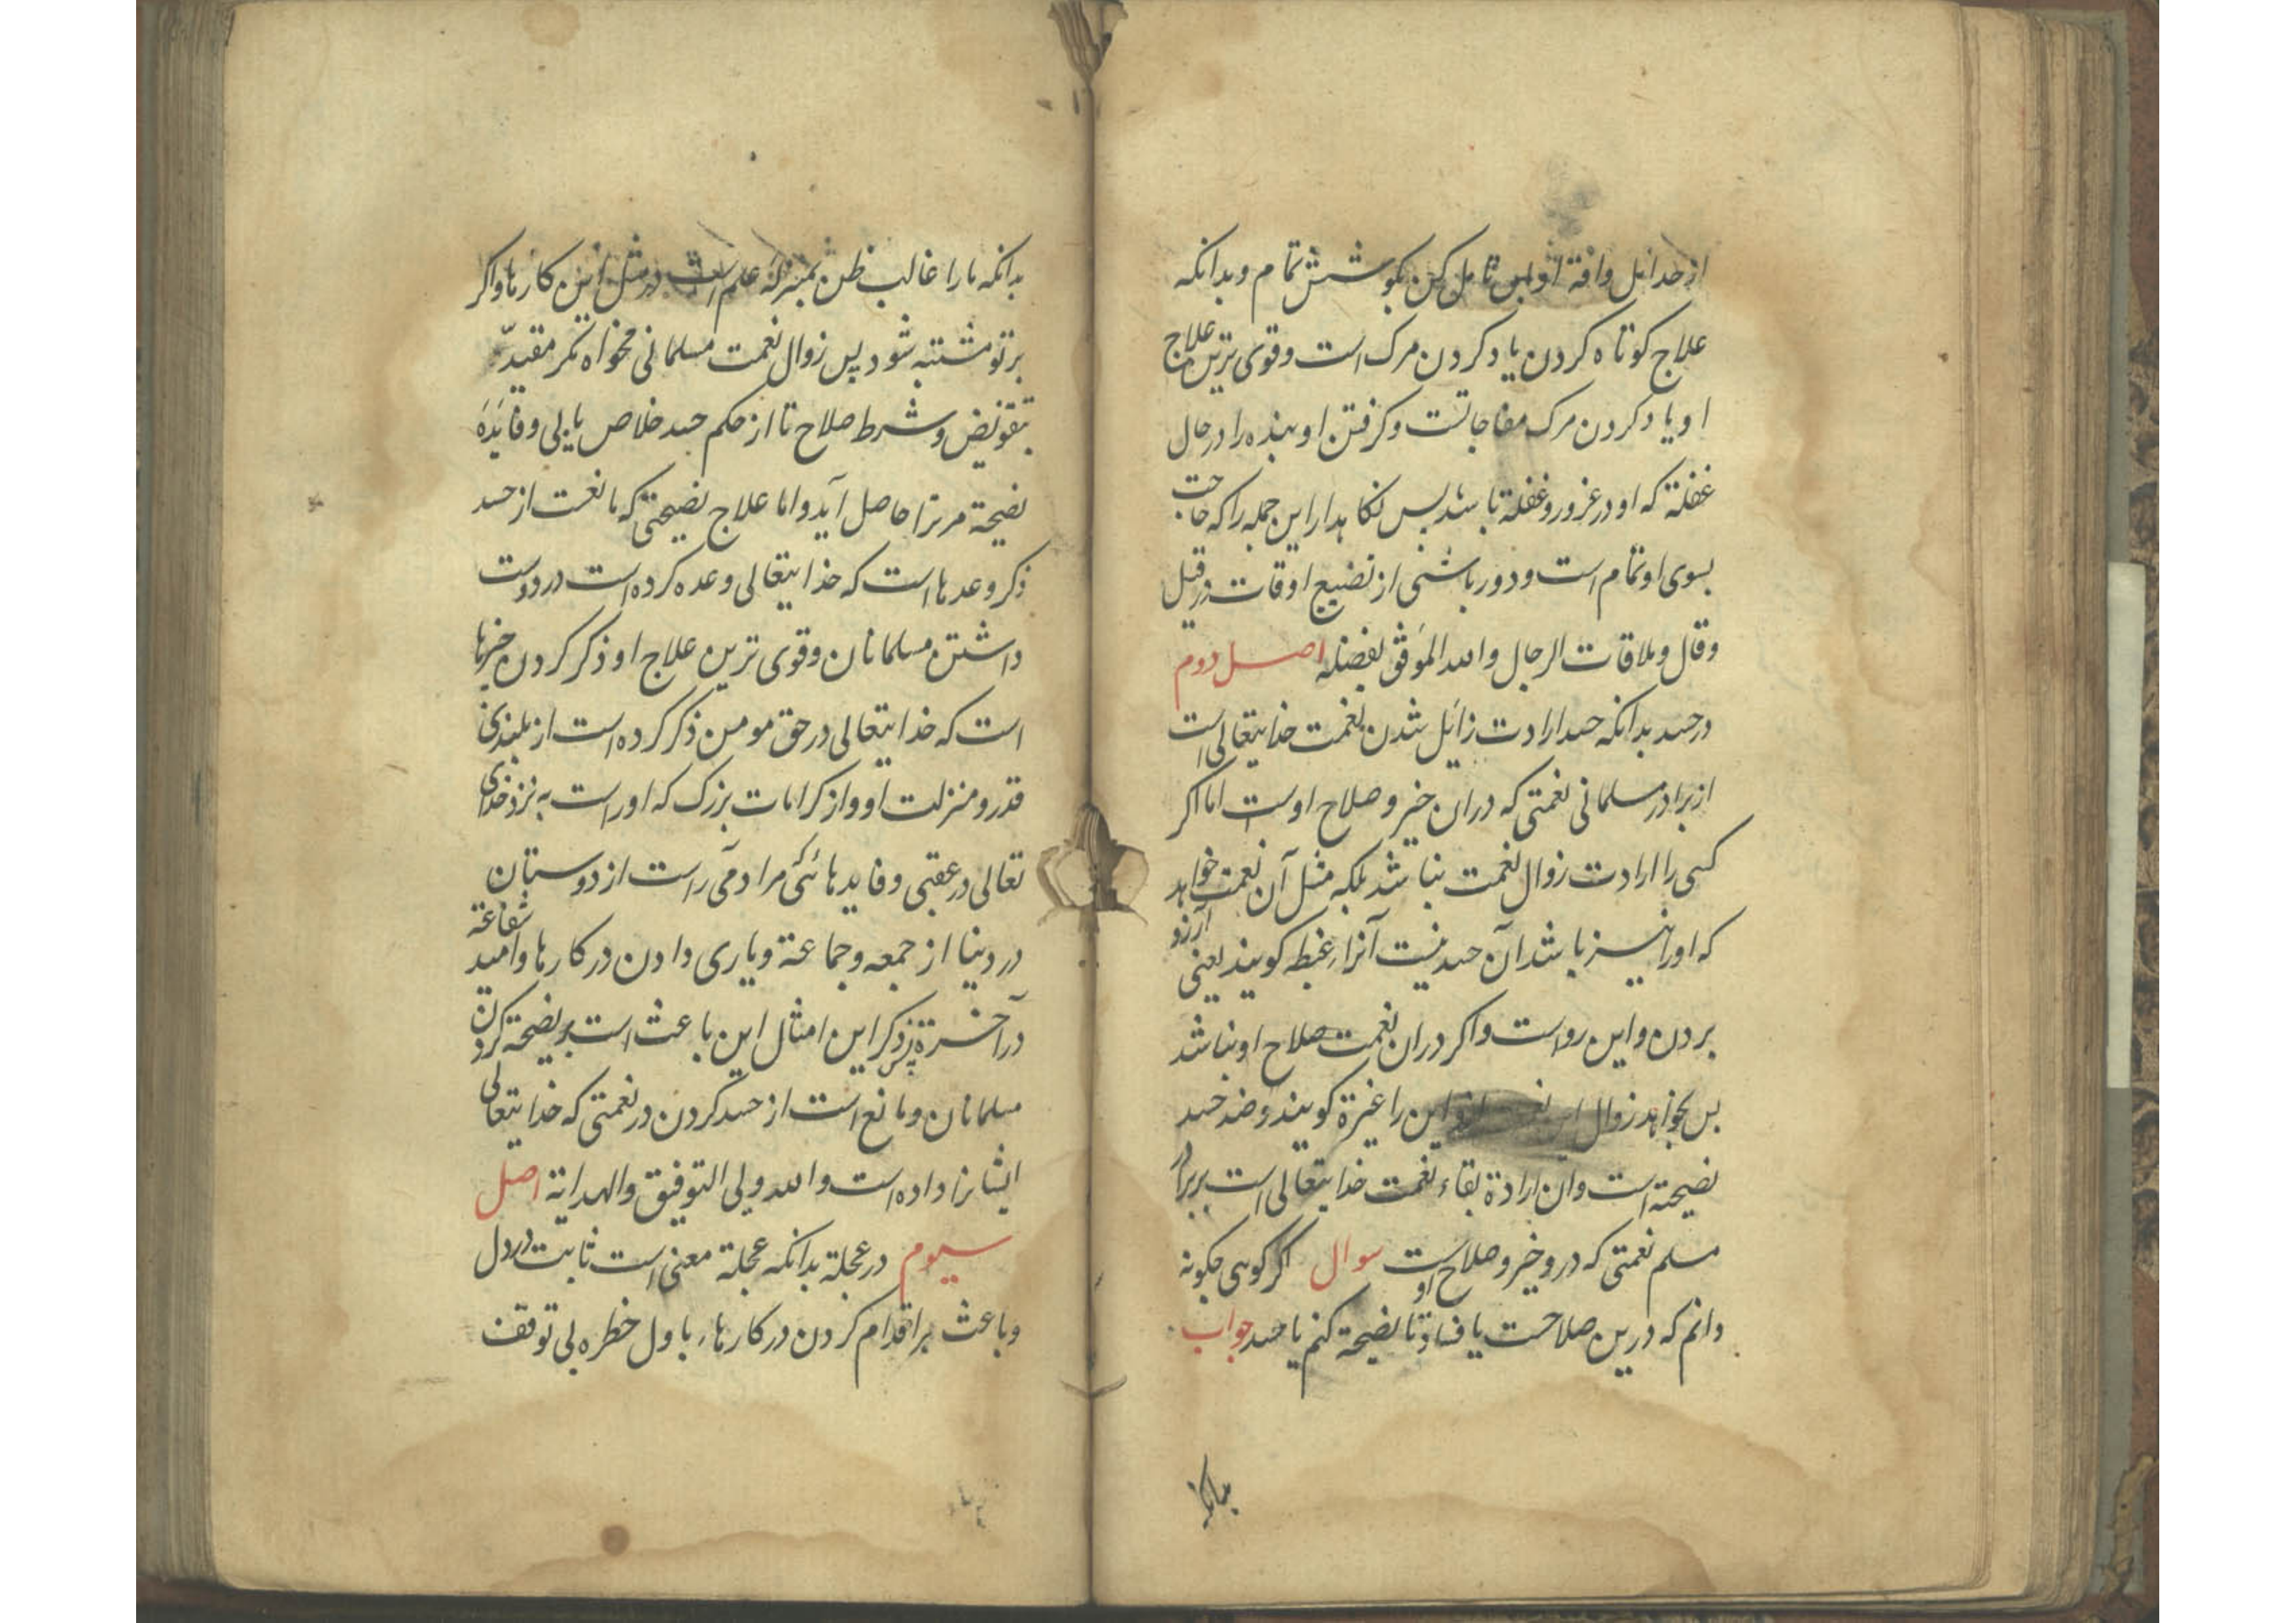 از حد امل وافة او پس تامل کن بکوشش تمام و بدانکه
علاج کوتاه کردن یاد کردن مرک است و قوی ترین علاج
او یاد کردن مرک مفاجاتست و کرفتن او بنده را در حال
غفلة که او در غرور و غفلة باشد پس نکاهدار این جمله را که حاجت
بسوی او تمام است و دور باشی از تضییع اوقات در قیل
وقال و ملاقات الرجال والله الموفق بفضله اصل دوم
در حسد بدانکه حسد ارادت زائل شدن نعمت خدایتعالی است
از برادر مسلمانی نعمتی که دران خیر و صلاح اوست اما اکر
کسی را ارادت زوال نعمت نباشد بلکه مثل آن نعمت خواهد
که اورا نیز باشد آن حسد نیست آنرا غبطه کویند یعنی آرزو
بردن و این رواست و اکر دران نعمت صلاح او نباشد
پس بخواهد زوال این نعمت ازو این را غیرة کویند و ضد حسد
نصیحة است وان ارادة بقاء نعمت خدایتعالی است بر برادر
مسلم نعمتی که درو خیر و صلاح اوست سوال اکر کوهی چکونه
دانم که درین صلاحست یا فساد تا نصیحة کنم یا حسد جواب
بدانکه
بدانکه ما را غالب ظن بمنزله علم است در مثل این کارها و اکر
بر تو مشتبه شود پس زوال نعمت مسلمانی مخواه مکر مقید
بتفویض و شرط صلاح تا از حکم حسد خلاص یابی و فایدهٔ
نصیحة مر ترا حاصل آید و اما علاج نصیحتی که مانعست از حسد
ذکر وعدها است که خدایتعالی وعده کرده است در دوست
داشتن مسلمانان و قوی ترین علاج او ذکر کردن چیزها
است که خدایتعالی در حق مومن ذکر کرده است از بلندی
قدر و منزلت او و از کرامات بزرک که اوراست به نزد خدای
تعالی در عقبی و فایدهائی که مرادمی راست از دوستان
در دینا از جمعه و جماعة و یاری دادن در کارها و امید شفاعة
در آخرة پس ذکر این امثال این باعث است بر نصیحة کردن
مسلمانان و مانع است از حسد کردن در نعمتی که خدایتعالی
ایشانرا داده است والله ولی التوفیق والهدایة اصل
سیوم در عجلة بدانکه عجلة معنی است ثابت در دل
و باعث بر اقدام کردن در کارها باول خطره بی توقف